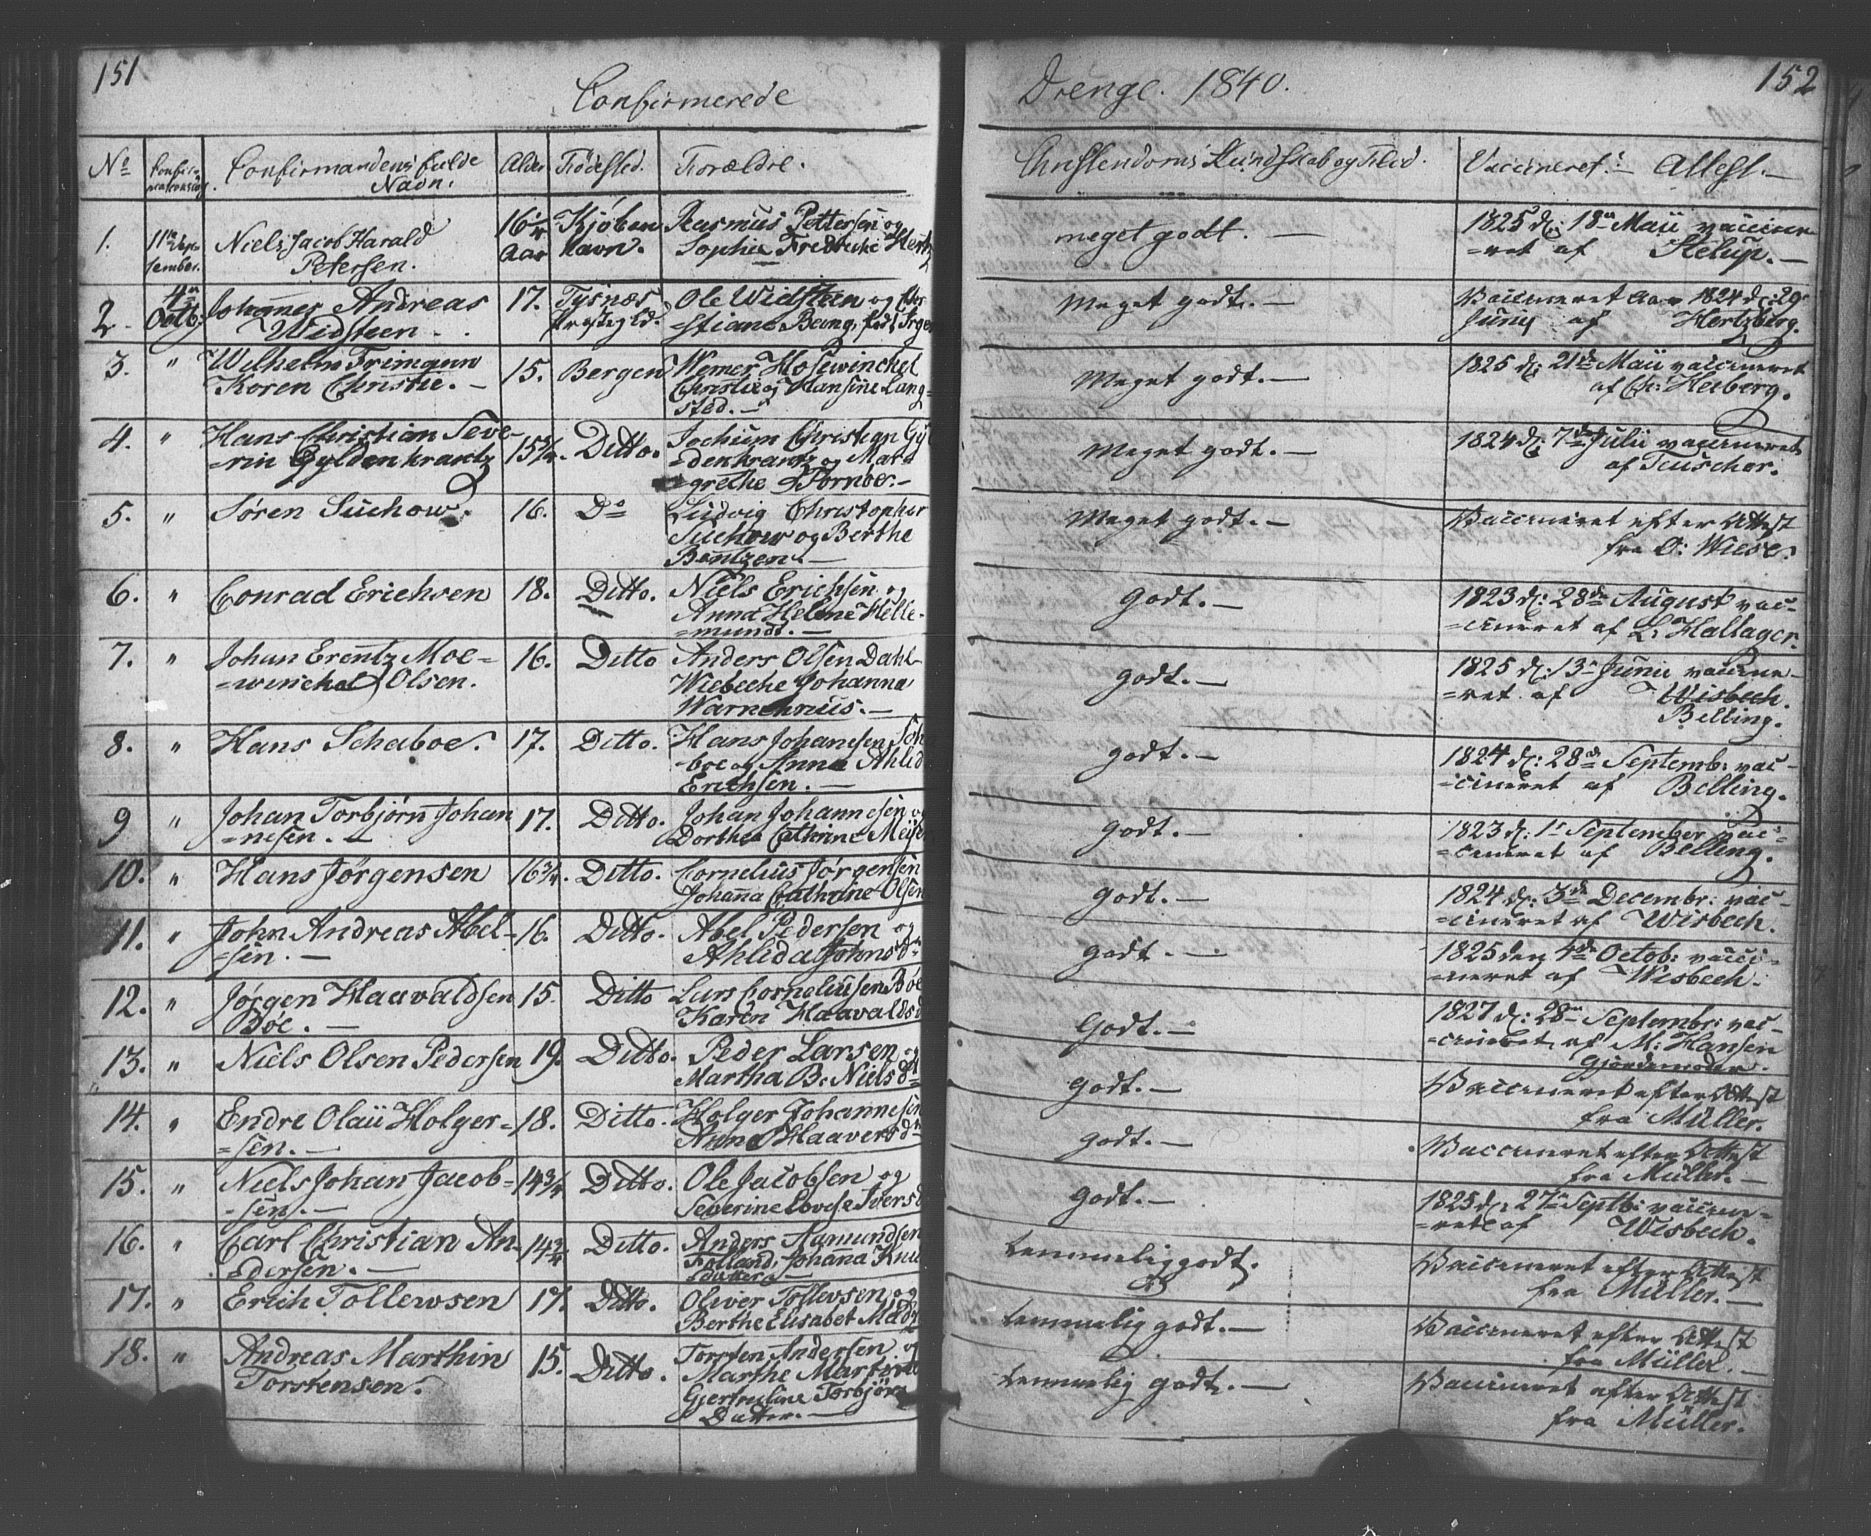 151
Confirmerede
Drenge. 1840.
152
No
Confirmandens fulde
Navn.
Alder
Fødested.
Forældre.
Christendoms Kundskab og Flid.
Vaccineret
Attest.
1.
11te Sep-
tember.
Niels Jacob Harald
Petersen.
16
Aar
Kjøben
havn.
Rasmus Pettersen og
Sophie Fredrikke Hertz
meget godt. —
1825 d: 18de Maii vaccine-
=ret af
2.
4de
Octb:
Johannes Andreas
Widsteen.
17.
Tysnæs
Prestegjeld.
Ole Widsteen og Chri
=stiane Bang,
Meget godt. —
Vaccineret Aar 1824 d: 29
Junij af Hertzberg.
3.
"
Wilhelm Frimann
Koren Christie. —
15.
Bergen
Werner Hosewinckel
Christie og Hansine Lang
=sted. —
Meget godt. —
1825 d: 21de Maii vaccineret
af Ch: Heiberg.
4.
"
Hans Christian Seve-
=rin Gyldenkrantz
15 3/4.
Ditto.
Jochum Christian Gyl
=denkrantz og Mar-
=grethe Fornoe. —
Meget godt. —
1824 d: 7de Julii vaccineret
af Teuscher.
5.
"
Søren Suchow.
16.
Do
Ludvig Christopher
Suchow og Berthe
Bentzen. —
Meget godt. —
Vaccineret efter Attest
fra O: Wiese.
6.
"
Conrad Erichsen
18.
Ditto.
Niels Erichsen og
Anna Helene Helle-
=mundt. —
Godt. —
1823 d: 28de August vac-
=cineret af L: Hallager.
7.
"
Johan Erentz Moe-
=winckel Olsen.
16.
Ditto
Anders Olsen Dahl
Wiebeche Johanna
Warnehnius. —
godt. —
1825 d: 13de Junii vaccine-
=ret af Wisbech.
Belling.
8.
"
Hans Schaboe.
17.
Ditto.
Hans Johanesen Sch
boe og Anna Ahlid
Erichsen. —
godt. —
1824 d: 28de Septemb: vac-
=cineret af Belling.
9
"
Johan Torbjørn Johan
=nesen. —
17.
Ditto.
Johan Johannesen og
Dorthea Cathrine Meije
godt. —
1823 d: 1te September vac-
=cineret af Belling.
10.
"
Hans Jørgensen
16 3/4.
Ditto.
Cornelius Jørgensen
Johanna Cathrine Olsen
godt. —
1824 d: 3de Decembr: vac-
=cineret af Wisbech.
11.
"
John Andreas Abel-
=sen. —
16.
Ditto.
Abel Pedersen og
Ahlida Johnsd
godt. —
1825 den 4de Octob: vacci-
=neret af Wisbech.
12.
"
Jørgen Haavaldsen
Böe. —
15.
Ditto
Lars Corneliusen Böe
Karen Haavaldsd
Godt. —
1827 d: 28de Septembr: vac-
=cineret af M: Hansen
Gjordemoder.
13.
"
Niels Olsen Pedersen
19.
Ditto.
Peder Larsen og
Martha B: Nielsd
godt. —
Vaccineret efter Attest
fra Müller.
14.
"
Endre Olaii Holger-
=sen. —
18.
Ditto.
Holger Johannesen
Anna Haaversd
godt. —
Vaccineret efter Attest
fra Müller. —
15.
"
Niels Johan Jacob-
=sen. —
14 3/4
Ditto.
Ole Jacobsen og
Severine Lovise Iversd
godt. —
1825 d: 27de Septb: vaccine-
=ret af Wisbech.
16.
"
Carl Christian An-
=dersen. —
14 3/4
Ditto.
Anders Aamundsen
Folland, Johanna Knu
datter —
temmelig godt.
Vaccineret efter Attest
fra Müller. —
17.
"
Erich Tollewsen
17.
Ditto.
Oliver Tollevsen og
Berthe Elisabet Mad
temmelig godt. —
Vaccineret efter Attest
fra Müller. —
18.
"
Andreas Marthin
Torstensen.
15.
Ditto.
Torsten Andersen og
Marthe Martine
Gjertruline Torbjørn
Datter. —
temmelig godt. —
Vaccineret efter Attest
fra Müller.